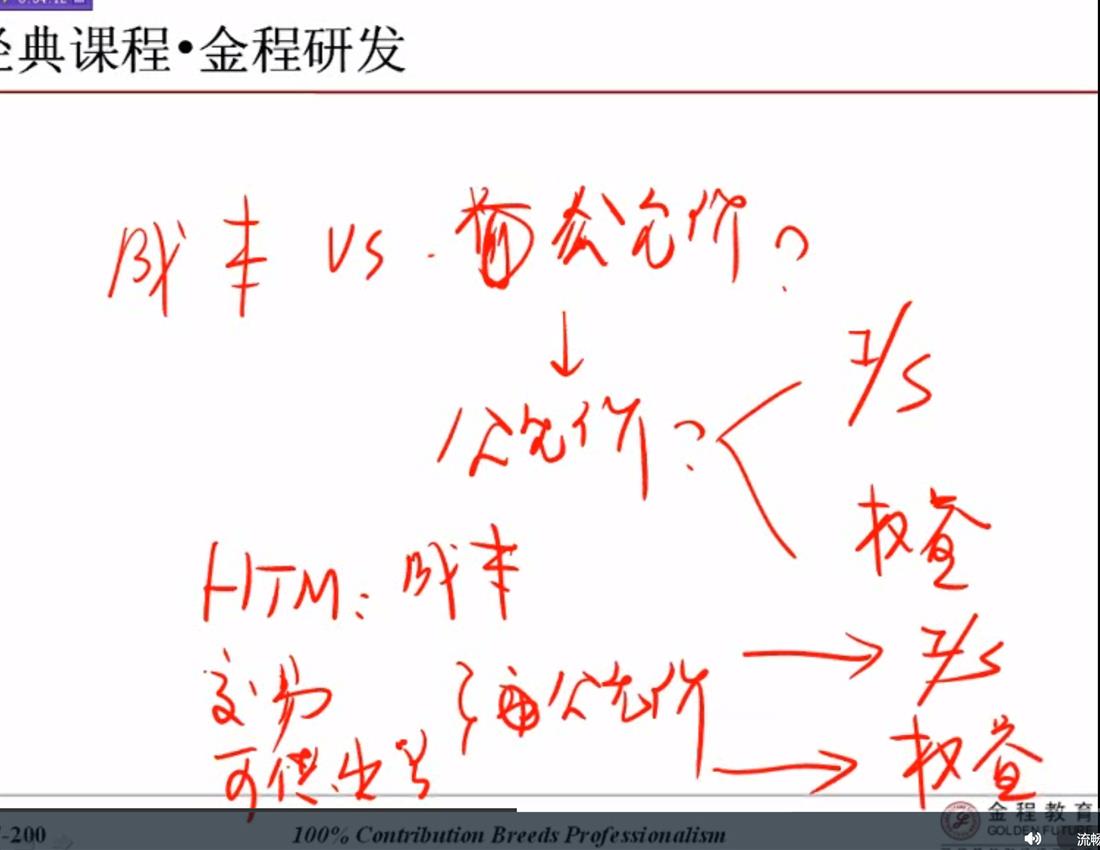 经典课程•金程研发
成本 VS. 公允价?
↓
公允价?
I/S
权益
HTM: 成本
交易
可供出售
} 公允价
→ I/S
→ 权益
-200
100% Contribution Breeds Professionalism
金程教育
GOLDEN FUTURE
流畅